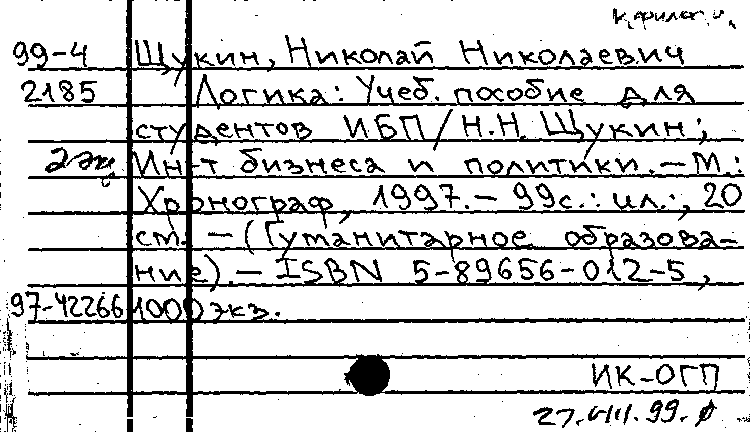 К. филос. н.
99-4 Щукин, Николай Николаевич
2185 Логика: Учеб. пособие для
студентов ИБП / Н.Н. Щукин;
2 экз Ин-т бизнеса и политики. - М.:
Хронограф, 1997. - 99с.: ил.:, 20
см. - (Гуманитарное образова-
ние). - ISBN 5-89656-012-5,
97-42266 1000 экз.
ИК-ОГП
27.VIII.99.